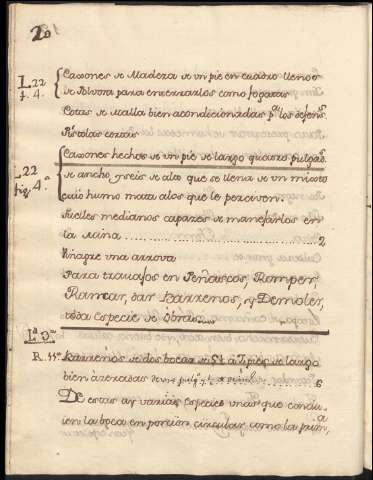 20
L. 22
f. 4.
Caxones de Madera de un pie en cuadro llenos
de Polvora para enterrarlos como fogatas
Cotas de Malla bien acondicionadas
Pistolas cortas
Caxones hechos de un pie de largo quatro pulgad.s
L. 22
fig. 4.a
de ancho, y seis de alto que se llena de un mixto
cuio humo mata alos que le perciven.
Fuelles medianos capazes de manejarlos en
la Mina .... 2
Vinagre una arrova
Para travajos en Peñascos, Romper,
Rancar, dar Barrenos, y Demoler,
toda Especie de Obras
L.a 3.a
R. 11.
Barrenos de dos bocas de 5½ à 7 pies de largo
bien azeradas de 6
De estas ay varias Especies unas que condu-
cen la boca en porcion circular como la prim.a